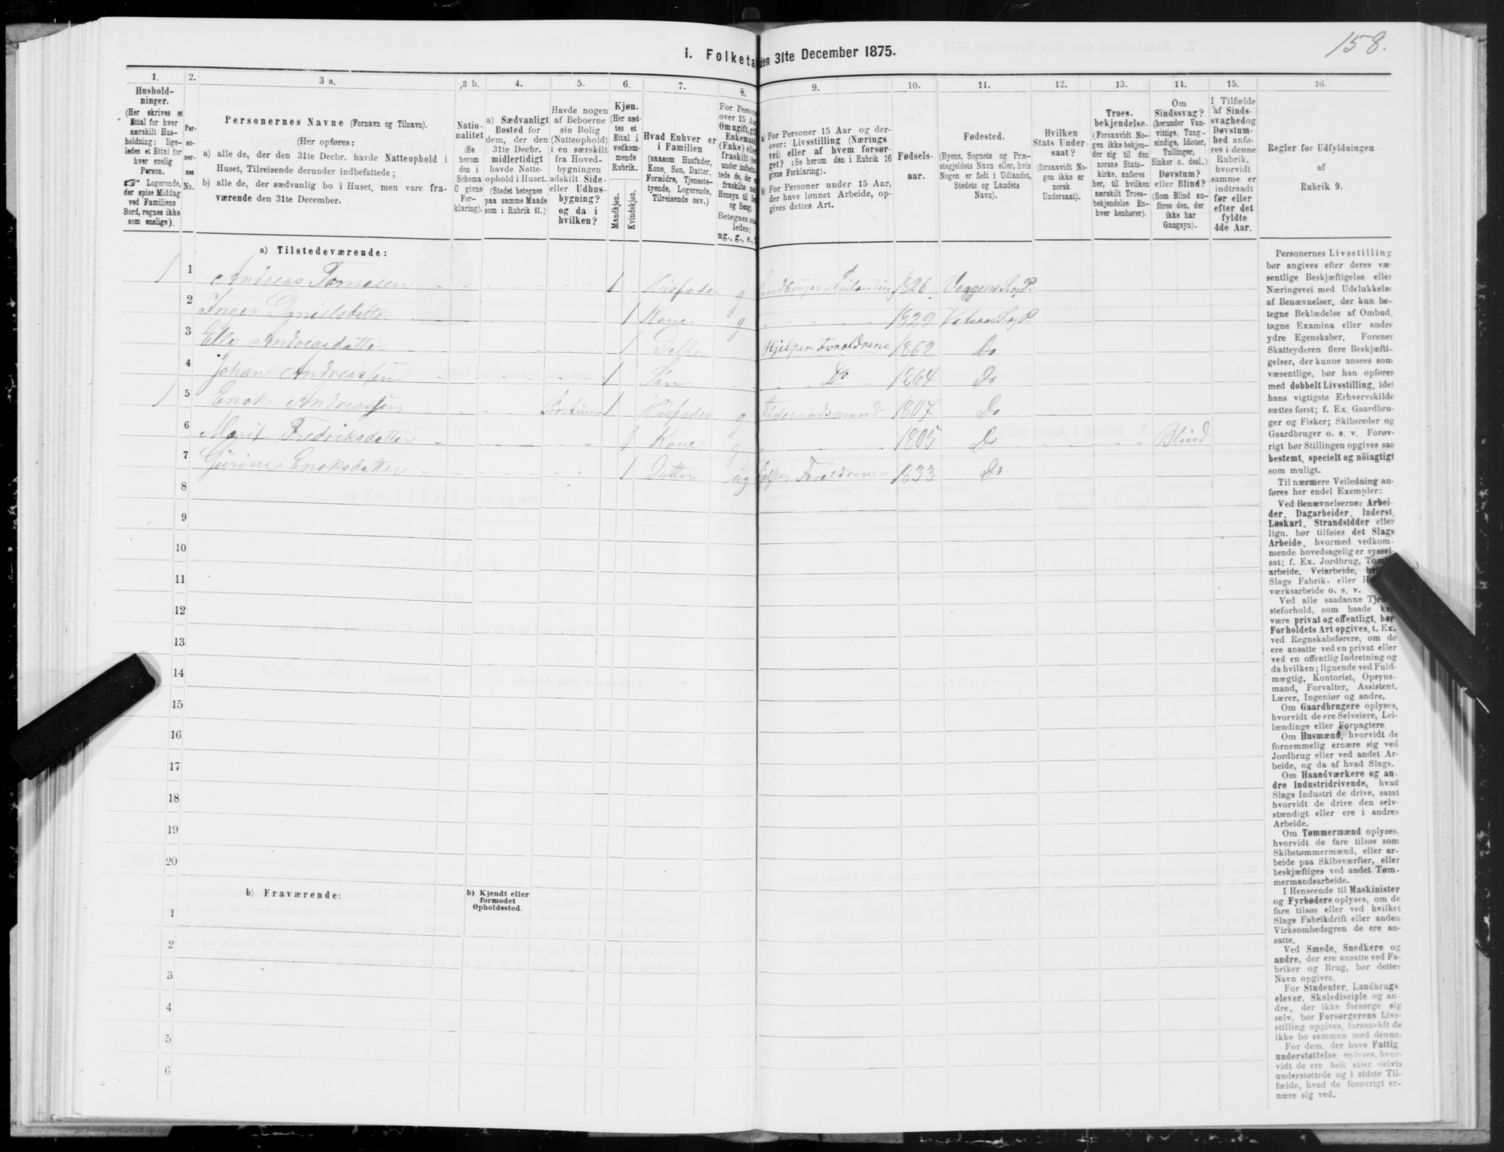 158.
1. Folketa den 31te December 1875.
1.
Hushold-
ninger.
(Her skrives et
Ettal for hver
særskilt Hus-
holdning; lige-
ledes et Ettal for
hver enslig
Person.
Logerende,
der spise Middag
ved Familiens
Bord, regnes ikke
som enslige).
2.
Per-
so-
ner-
nes
No.
3 a.
Personernes Navne (Fornavn og Tilnavn).
(Her opføres:
a) alle de, der den 31te Decbr. havde Natteophold i
Huset, Tilreisende derunder indbefattede;
b) alle de, der sædvanlig bo i Huset, men vare fra-
værende den 31te December.
3 b.
Natio-
nalitet
(Se
herom
den i
Schema
G givne
For-
klaring).
4.
a) Sædvanligt
Bosted for
dem, der den
31te Decbr.
midlertidigt
havde Natte-
ophold i Huset.
(Stedet betegnes
paa samme Maade
som i Rubrik 11.)
5.
Havde nogen
af Beboerne
sin Bolig
(Natteophold)
i en særskilt
fra Hoved-
bygningen
adskilt Side-
eller Udhus-
bygning?
og da i
hvilken?
6.
Kjøn.
(Her sæt-
tes et
Ettal i
vedkom-
mende
Rubrik.
Mandkjøn.
Kvindekjøn.
7.
Hvad Enhver er
i Familien
(saasom Husfader,
Kone, Søn, Datter,
Forældre, Tjeneste-
tyende, Logerende,
Tilreisende osv.)
8.
For Person
over 15 Aa
Om ugift, gif
Enkema
(Enke) elle
fraskilt
9.
a) For Personer 15 Aar og der-
over: Livsstilling (Nærings
vei) eller af hvem forsør-
get? (Se herom den i Rubrik 16
givne Forklaring).
b) For Personer under 15 Aar,
der have lønnet Arbeide, op-
gives dettes Art.
10.
Fødsels-
aar.
11.
Fødested.
(Byens, Sognets og Præ-
stegjeldets Navn eller, hvis
Nogen er født i Udlandet,
Stedets og Landets
Navn).
12.
Hvilken
Stats Under-
saat?
(forsaavidt No-
gen ikke er
norsk
Undersaat).
13.
Troes-
bekjendelse.
(Forsaavidt No-
gen ikke bekjen-
der sig til den
norske Stats-
kirke, anføres
her, til hvilken
særskilt Troes-
bekjendelse En-
hver henhører).
14.
Om
Sindssvag?
(herunder Van-
vittige, Tung-
sindige, Idioter,
Tullinger,
Sinker o. desl.)
Døvstum?
eller Blind?
(Som Blind an-
føres den, der
ikke har
Gangsyn).
15.
I Tilfælde
af Sinds-
svaghed og
Døvstum-
hed anfø-
res i denne
Rubrik,
hvorvidt
samme er
indtraadt
før eller
efter det
fyldte
4de Aar.
16.
Regler før Udfyldningen
af
Rubrik 9.
a) Tilstedeværende:
1 1 Andreas Tomasen 1 Husfader g 1826
2 Inger Danielsdatter 1 Kone g 1829
3 Elle Andreasdatter 1 Datter Hjelper Foreldrene 1862 Do
4 Johan Andreassen 1 Søn Do 1864 Do
1 5 Enok Andreassen 1 Husfader g 1807 Do
6 Marit Fredriksdatter 1 Kone g 1805 Do Blind
7 Gurine Enoksdatter 1 Datter ug Hjelper Foreldrene 1833 Do
8
9
10
11
12
13
14
15
16
17
18
19
20
b) Fraværende:
b) Kjendt eller
formodet
Opholdssted.
1
2
3
4
5
6
Personernes Livsstilling
bør angives efter deres væ-
sentlige Beskjæftigelse eller
Næringsvei med Udelukkelse
af Benævnelser, der kun be-
tegne Beklædelse af Ombud,
tagne Examina eller andre
ydre Egenskaber. Forener
Skatteyderen flere Beskjæfti-
gelser, der kunne ansees som
væsentlige, bør han opføres
med dobbelt Livsstilling, idet
hans vigtigste Erhvervskilde
sættes først; f. Ex. Gaardbru-
ger og Fisker; Skibsreder og
Gaardbruger o. s. v. Forøv-
rigt bør Stillingen opgives saa
bestemt, specielt og nöiagtigt
som muligt.
Til nærmere Veiledning an-
føres her endel Exempler:
Ved Benævnelserne: Arbei-
der, Dagarbeider, Inderst,
Løskarl, Strandsidder eller
lign. bør tilføies det Slags
Arbeide, hvormed vedkom-
mende hovedsagelig er syssel-
sat; f. Ex. Jordbrug, Tom
arbeide, Veiarbeide,
Slags Fabrik- eller H
værksarbeide o. s. v.
Ved alle saadanne Tje
steforhold, som baade ka
være privat og offentligt, bør
Forholdets Art opgives, t. Ex.
ved Regnskabsførere, om de
ere ansatte ved en privat eller
ved en offentlig Indretning og
da hvilken; lignende ved Fuld-
mægtig, Kontorist, Opsyns-
mand, Forvalter, Assistent,
Lærer, Ingeniør og andre.
Om Gaardbrugere oplyses,
hvorvidt de ere Selveiere, Lei-
lændinge eller Forpagtere.
Om Husmænd, hvorvidt de
fornemmelig ernære sig ved
Jordbrug eller ved andet Ar-
beide, og da af hvad Slags.
Om Haandværkere og an-
dre Industridrivende, hvad
Slags Industri de drive, samt
hvorvidt de drive den selv-
stændigt eller ere i andres
Arbeide.
Om Tømmermænd oplyses,
hvorvidt de fare tilsøs som
Skibstømmermænd, eller ar-
beide paa Skibsværfter, eller
beskjæftiges ved andet Tøm-
mermandsarbeide.
I Henseende til Maskinister
og Fyrbødere oplyses, om de
fare tilsøs eller ved hvilket
Slags Fabrikdrift eller anden
Virksomhedsgren de ere an-
satte.
Ved Smede, Snedkere og
andre, der ere ansatte ved Fa-
briker og Brug, bør dettes
Navn opgives.
For Studenter, Landbrugs-
elever, Skoledisciple og an-
dre, der ikke forsørge sig
selv, bør Forsørgerens Livs-
stilling opgives, forsaavidt de
ikke bo sammen med denne.
For dem, der have Fattig
understøttelse, oplyses, hvor-
vidt de ere helt eller delvis
understøttede og i sidste Til-
fælde, hvad de forøvrigt er-
nære sig ved.